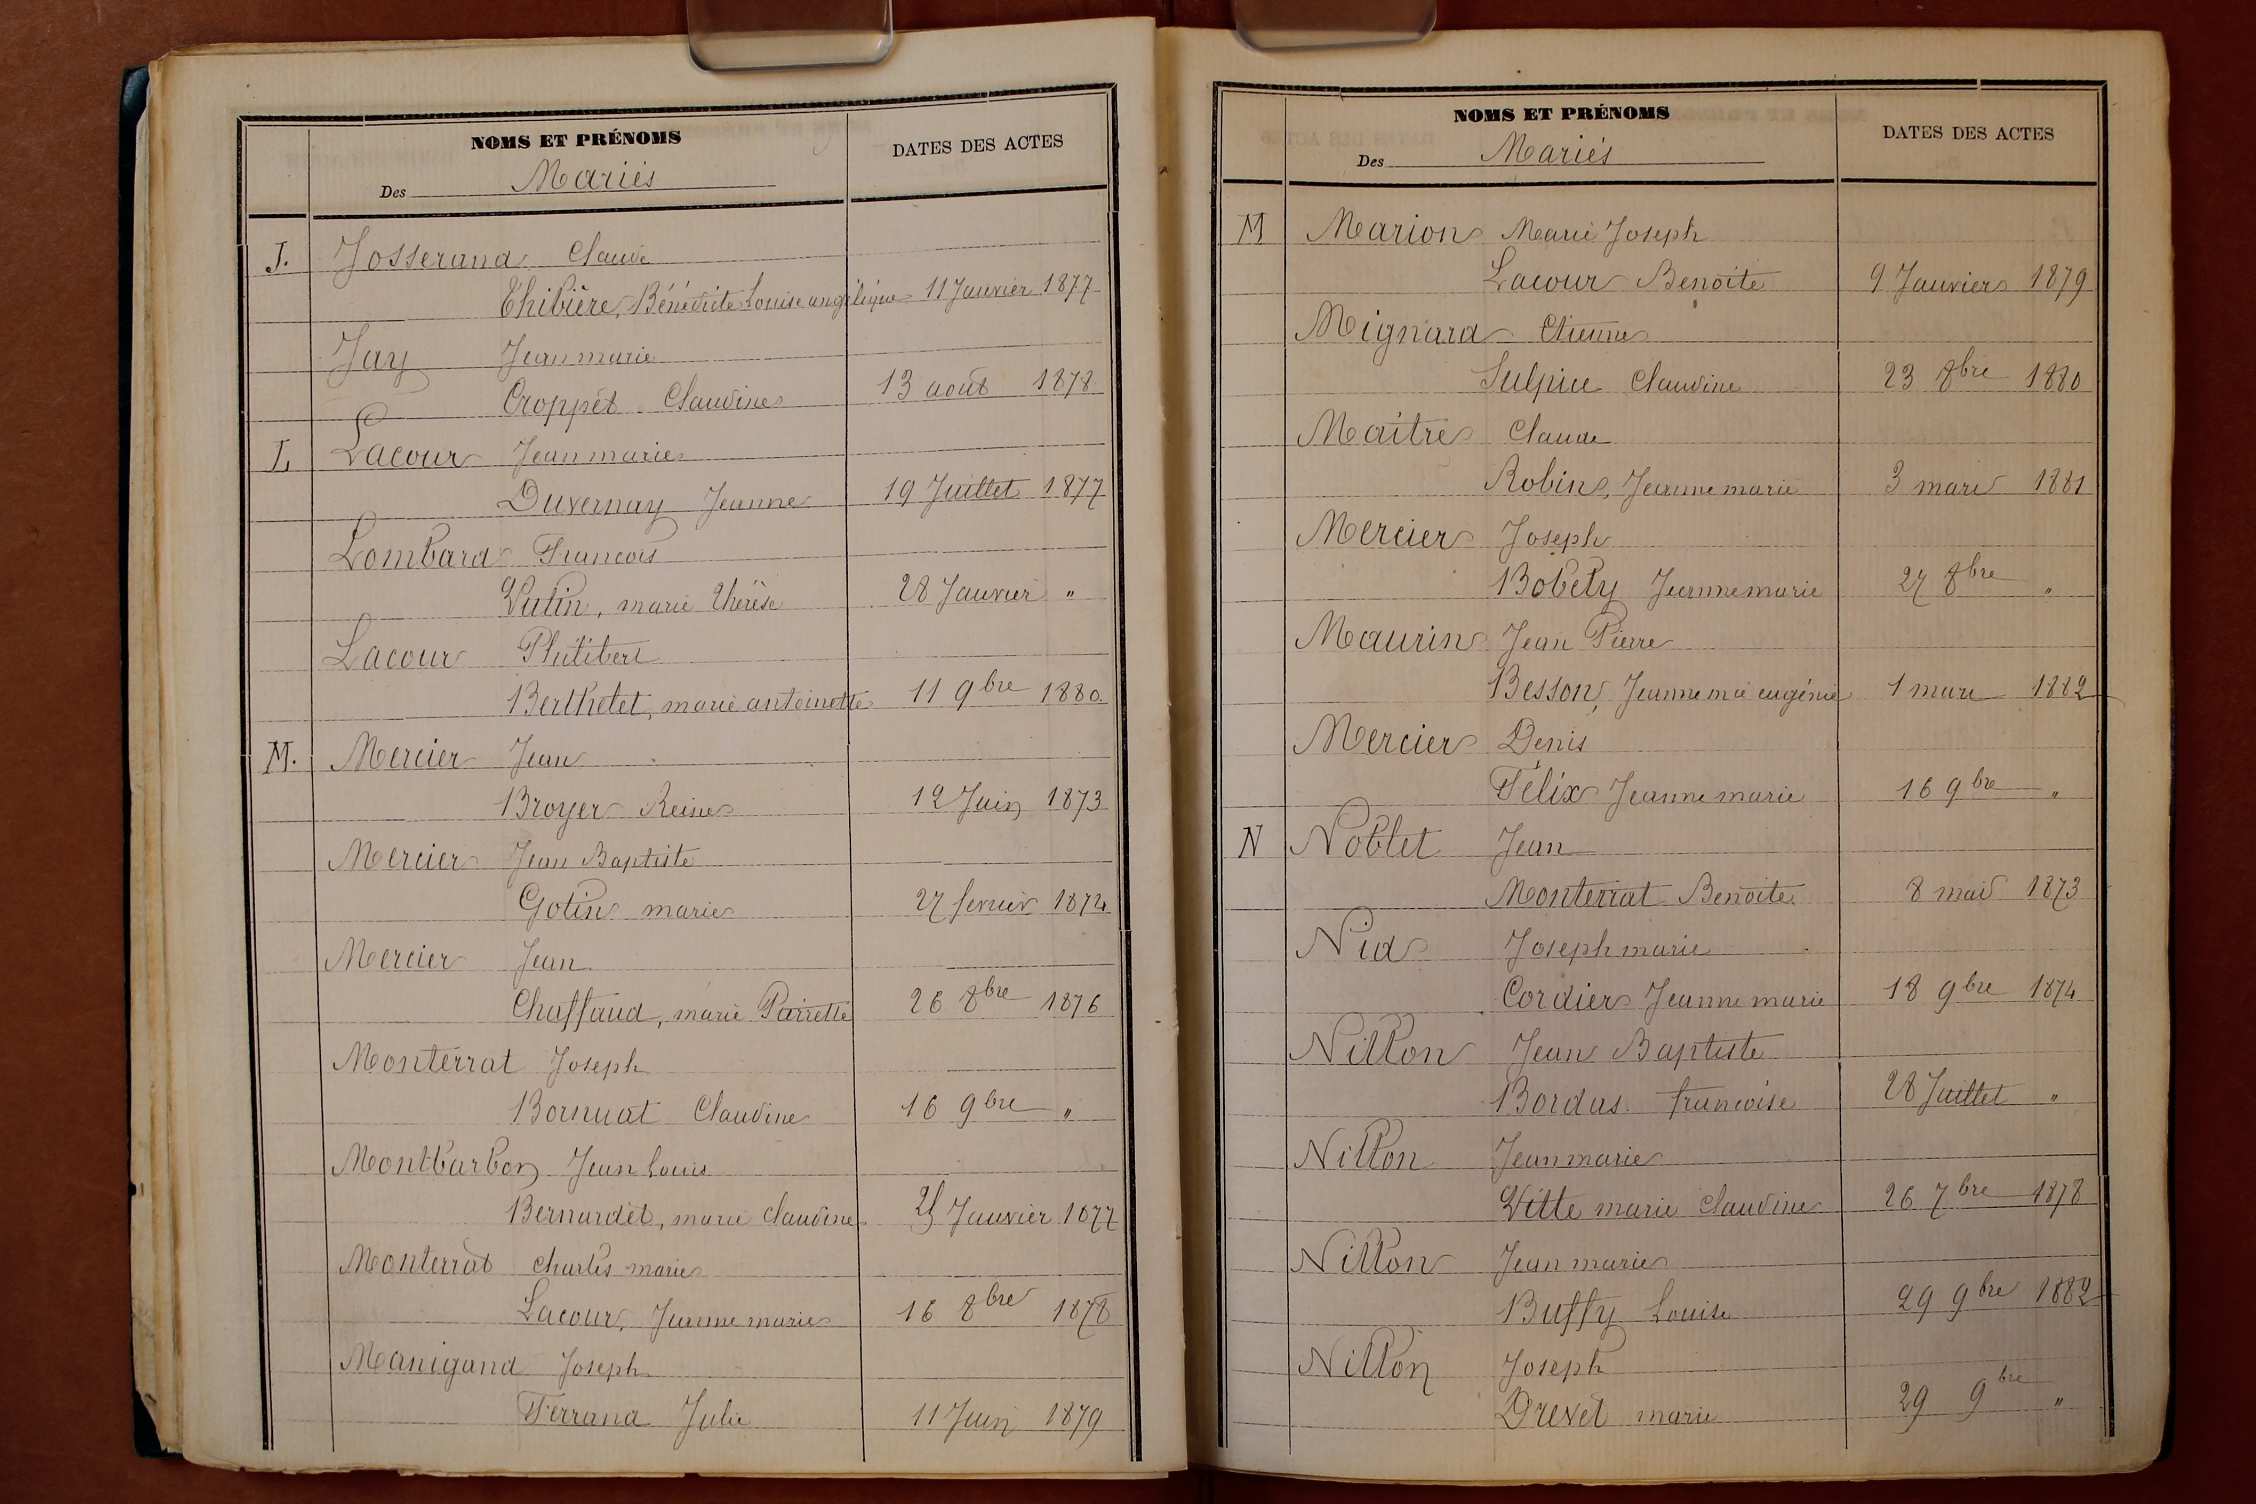 NOMS ET PRÉNOMS
Des Mariés
DATES DES ACTES
J. Josserand Claude
Thibière, Bénédite Louise angélique 11 Janvier 1877
Jay Jean marie
Croppet Claudine 13 août 1878
L Lacour Jean marie
Duvernay Jeanne 19 Juillet 1877
Lombard François
Vulin, marie Thérèse 28 Janvier "
Lacour Philibert
Berthelet, marie antoinette 11 9bre 1880
M. Mercier Jean
Broyer Reine 12 Juin 1873
Mercier Jean Baptiste
Gotin marie 27 fevrier 1874
Mercier Jean
Chaffaud, marie Pierrette 26 8bre 1876
Monterrat Joseph
Bornuat Claudine 16 9bre "
Montbarbon Jean Louis
Bernardet, marie Claudine Janvier 1877
Monterrat Charles marie
Lacour, Jeanne marie 16 8bre 1878
Manigand Joseph
Ferrand Julie 11 Juin 1879
NOMS ET PRÉNOMS
Des Mariés
DATES DES ACTES
M Marion Marie Joseph
Lacour Benoite 9 Janvier 1879
Mignard Etienne
Sulpice Claudine 23 8bre 1880
Maitre Claude
Robin, Jeanne marie 3 mars 1881
Mercier Joseph
Bobely Jeanne marie 27 8bre "
Maurin Jean Pierre
Besson, Jeanne mie eugénie 1 mars 1882
Mercier Denis
Félix Jeanne marie 16 9bre "
N Noblet Jean
Monterrat Benoite 8 mai 1873
Nid Joseph marie
Cordier Jeanne marie 18 9bre 1874
Nillon Jean Baptiste
Bordas françoise 28 Juillet "
Nillon Jean marie
Vitte marie Claudine 26 7bre 1878
Nillon Jean marie
Buffy Louise 29 9bre 1882
Nillon Joseph
Drevet marie 29 9bre "